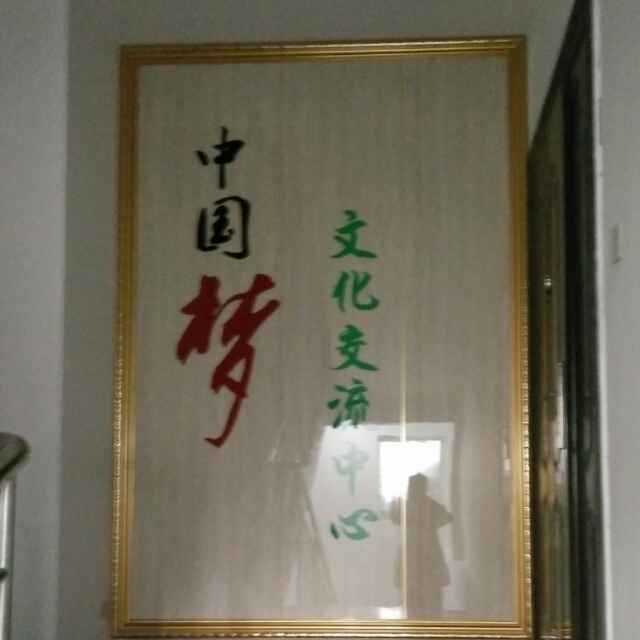 中国梦
文化交流中心